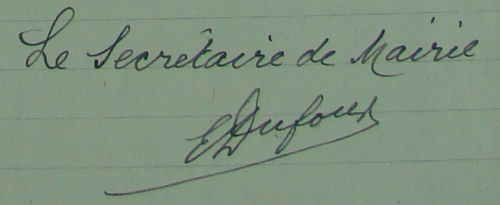 Le Secrétaire de Mairie
E Dufour